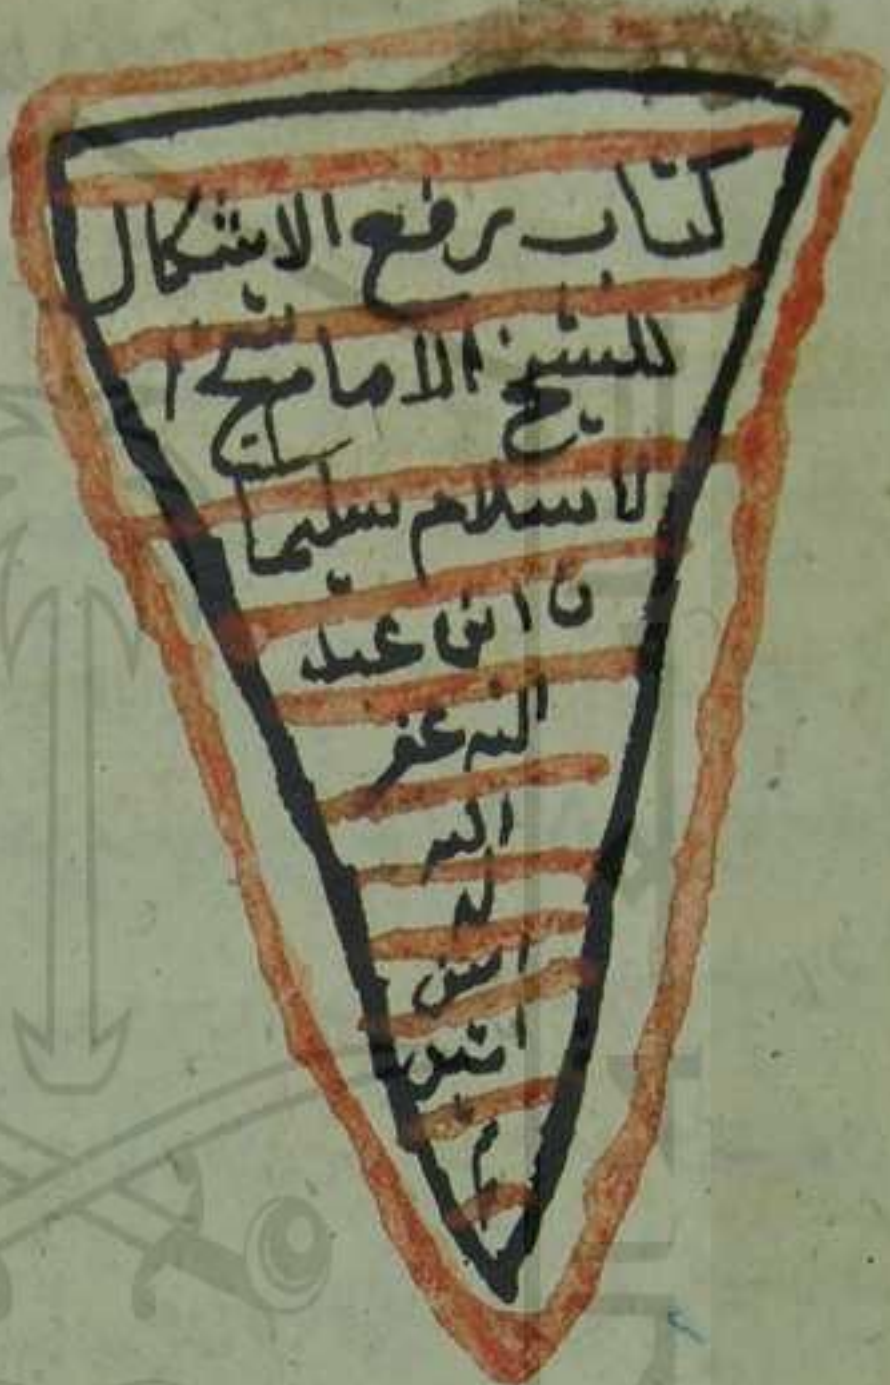 كتاب رفع الاشكال
للشيخ الامام شيخ ا
لاسلام سليما
ن ابن عبد
الله غفر
الله
له
امين
امين
م